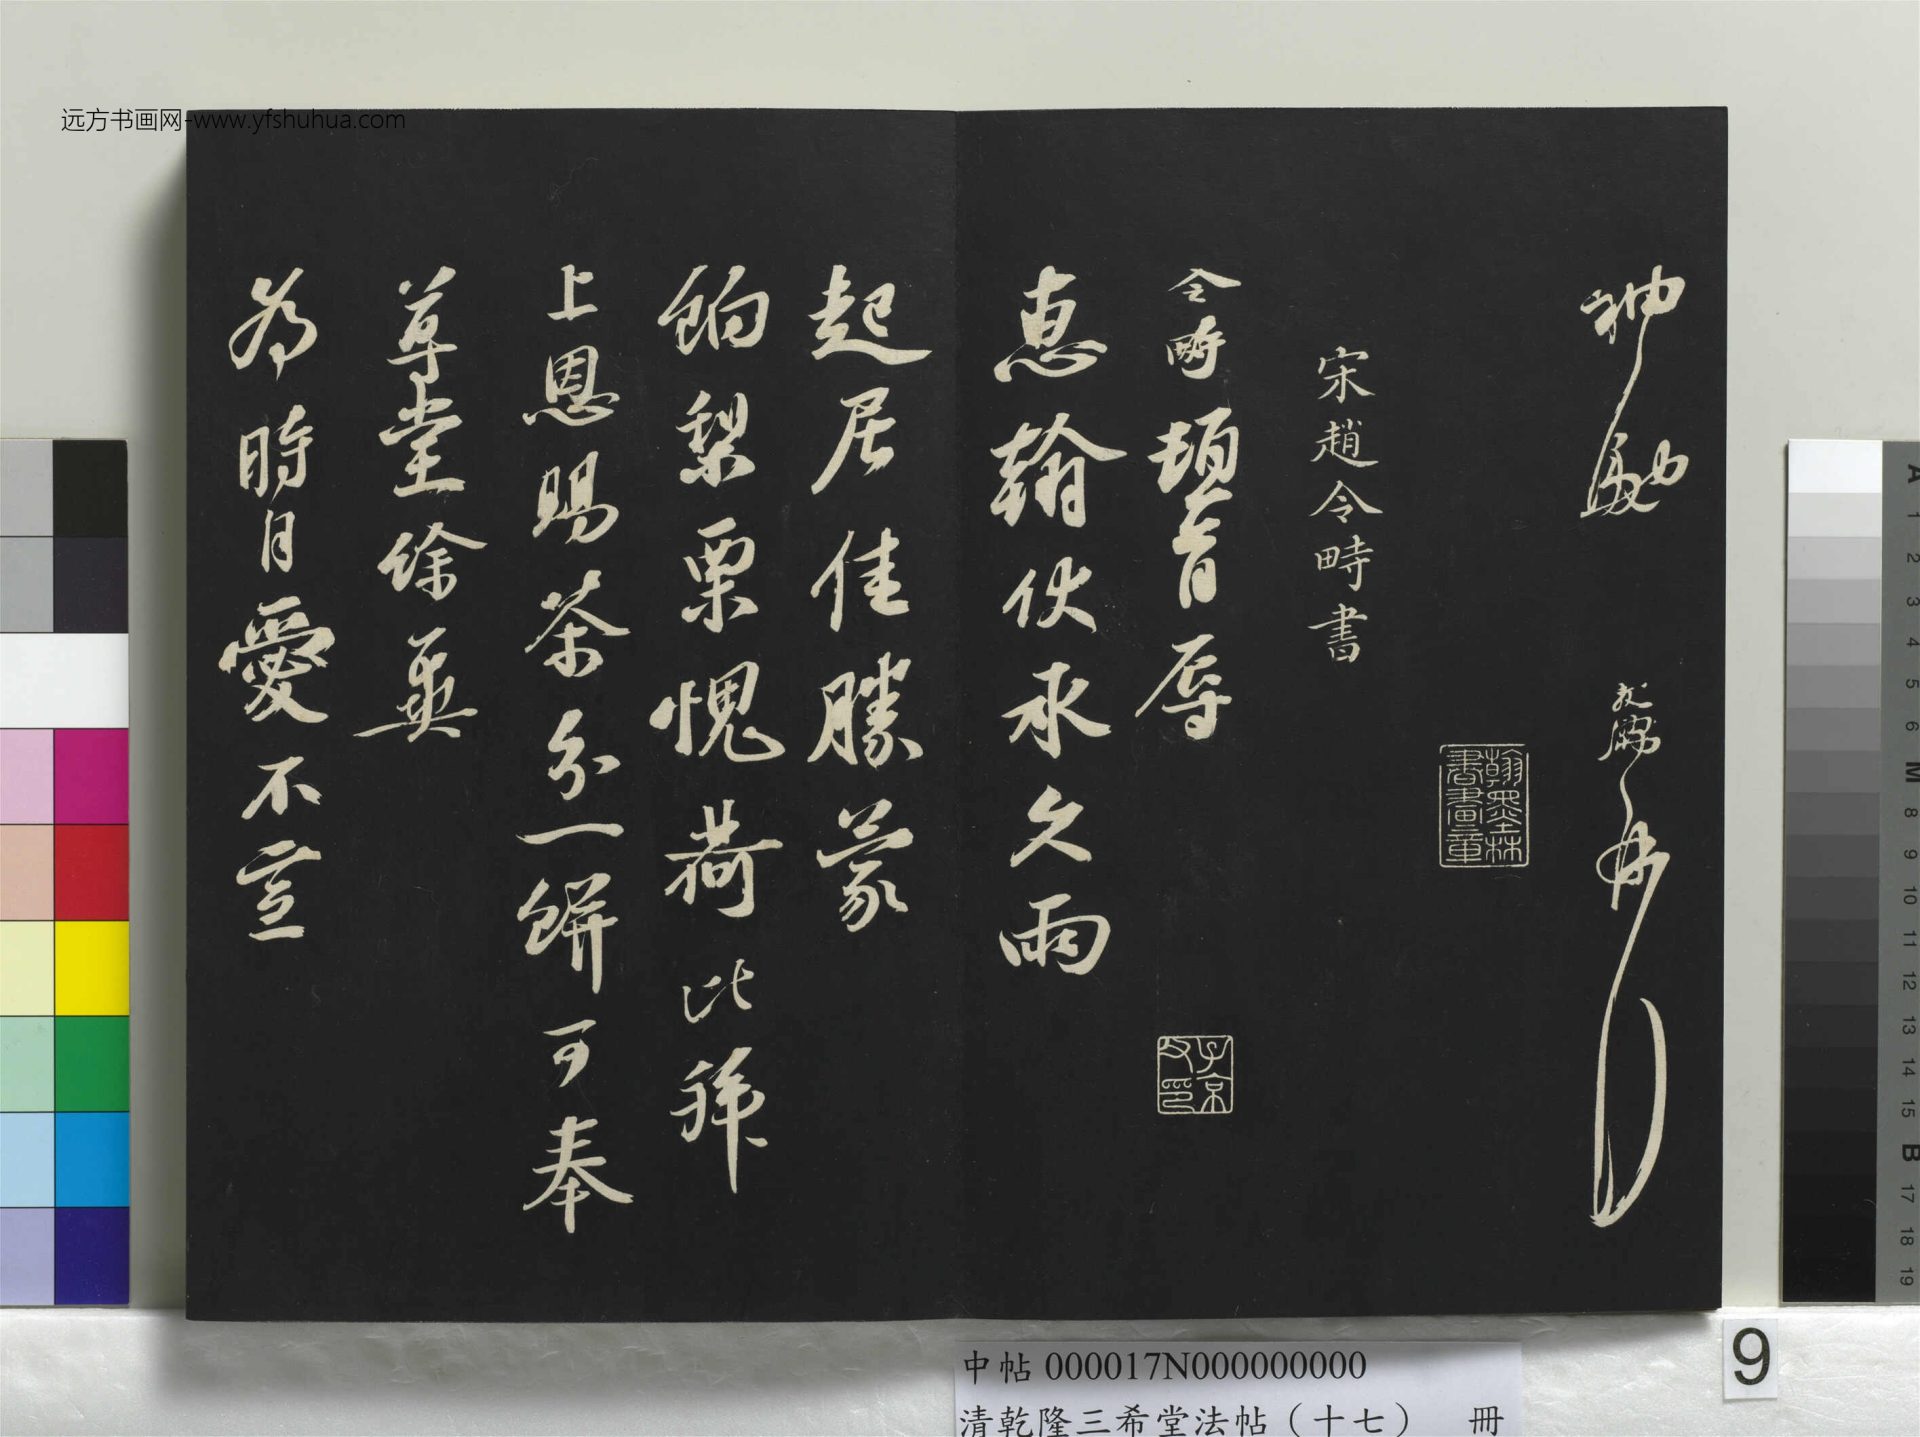 远方书画网-www.yfshuhua.com
神
宋趙令畤書
翰墨林書畫章
令畤頓首辱
惠翰伏承久雨
子京父印
起居佳勝蒙
餉梨栗愧荷比拜
上恩賜茶分一餅可奉
尊堂餘冀
為時自愛不宣
中帖 000017N000000000
清乾隆三希堂法帖（十七） 冊
9
A
1
2
3
4
5
6
M
8
9
10
11
12
13
14
15
B
17
18
19